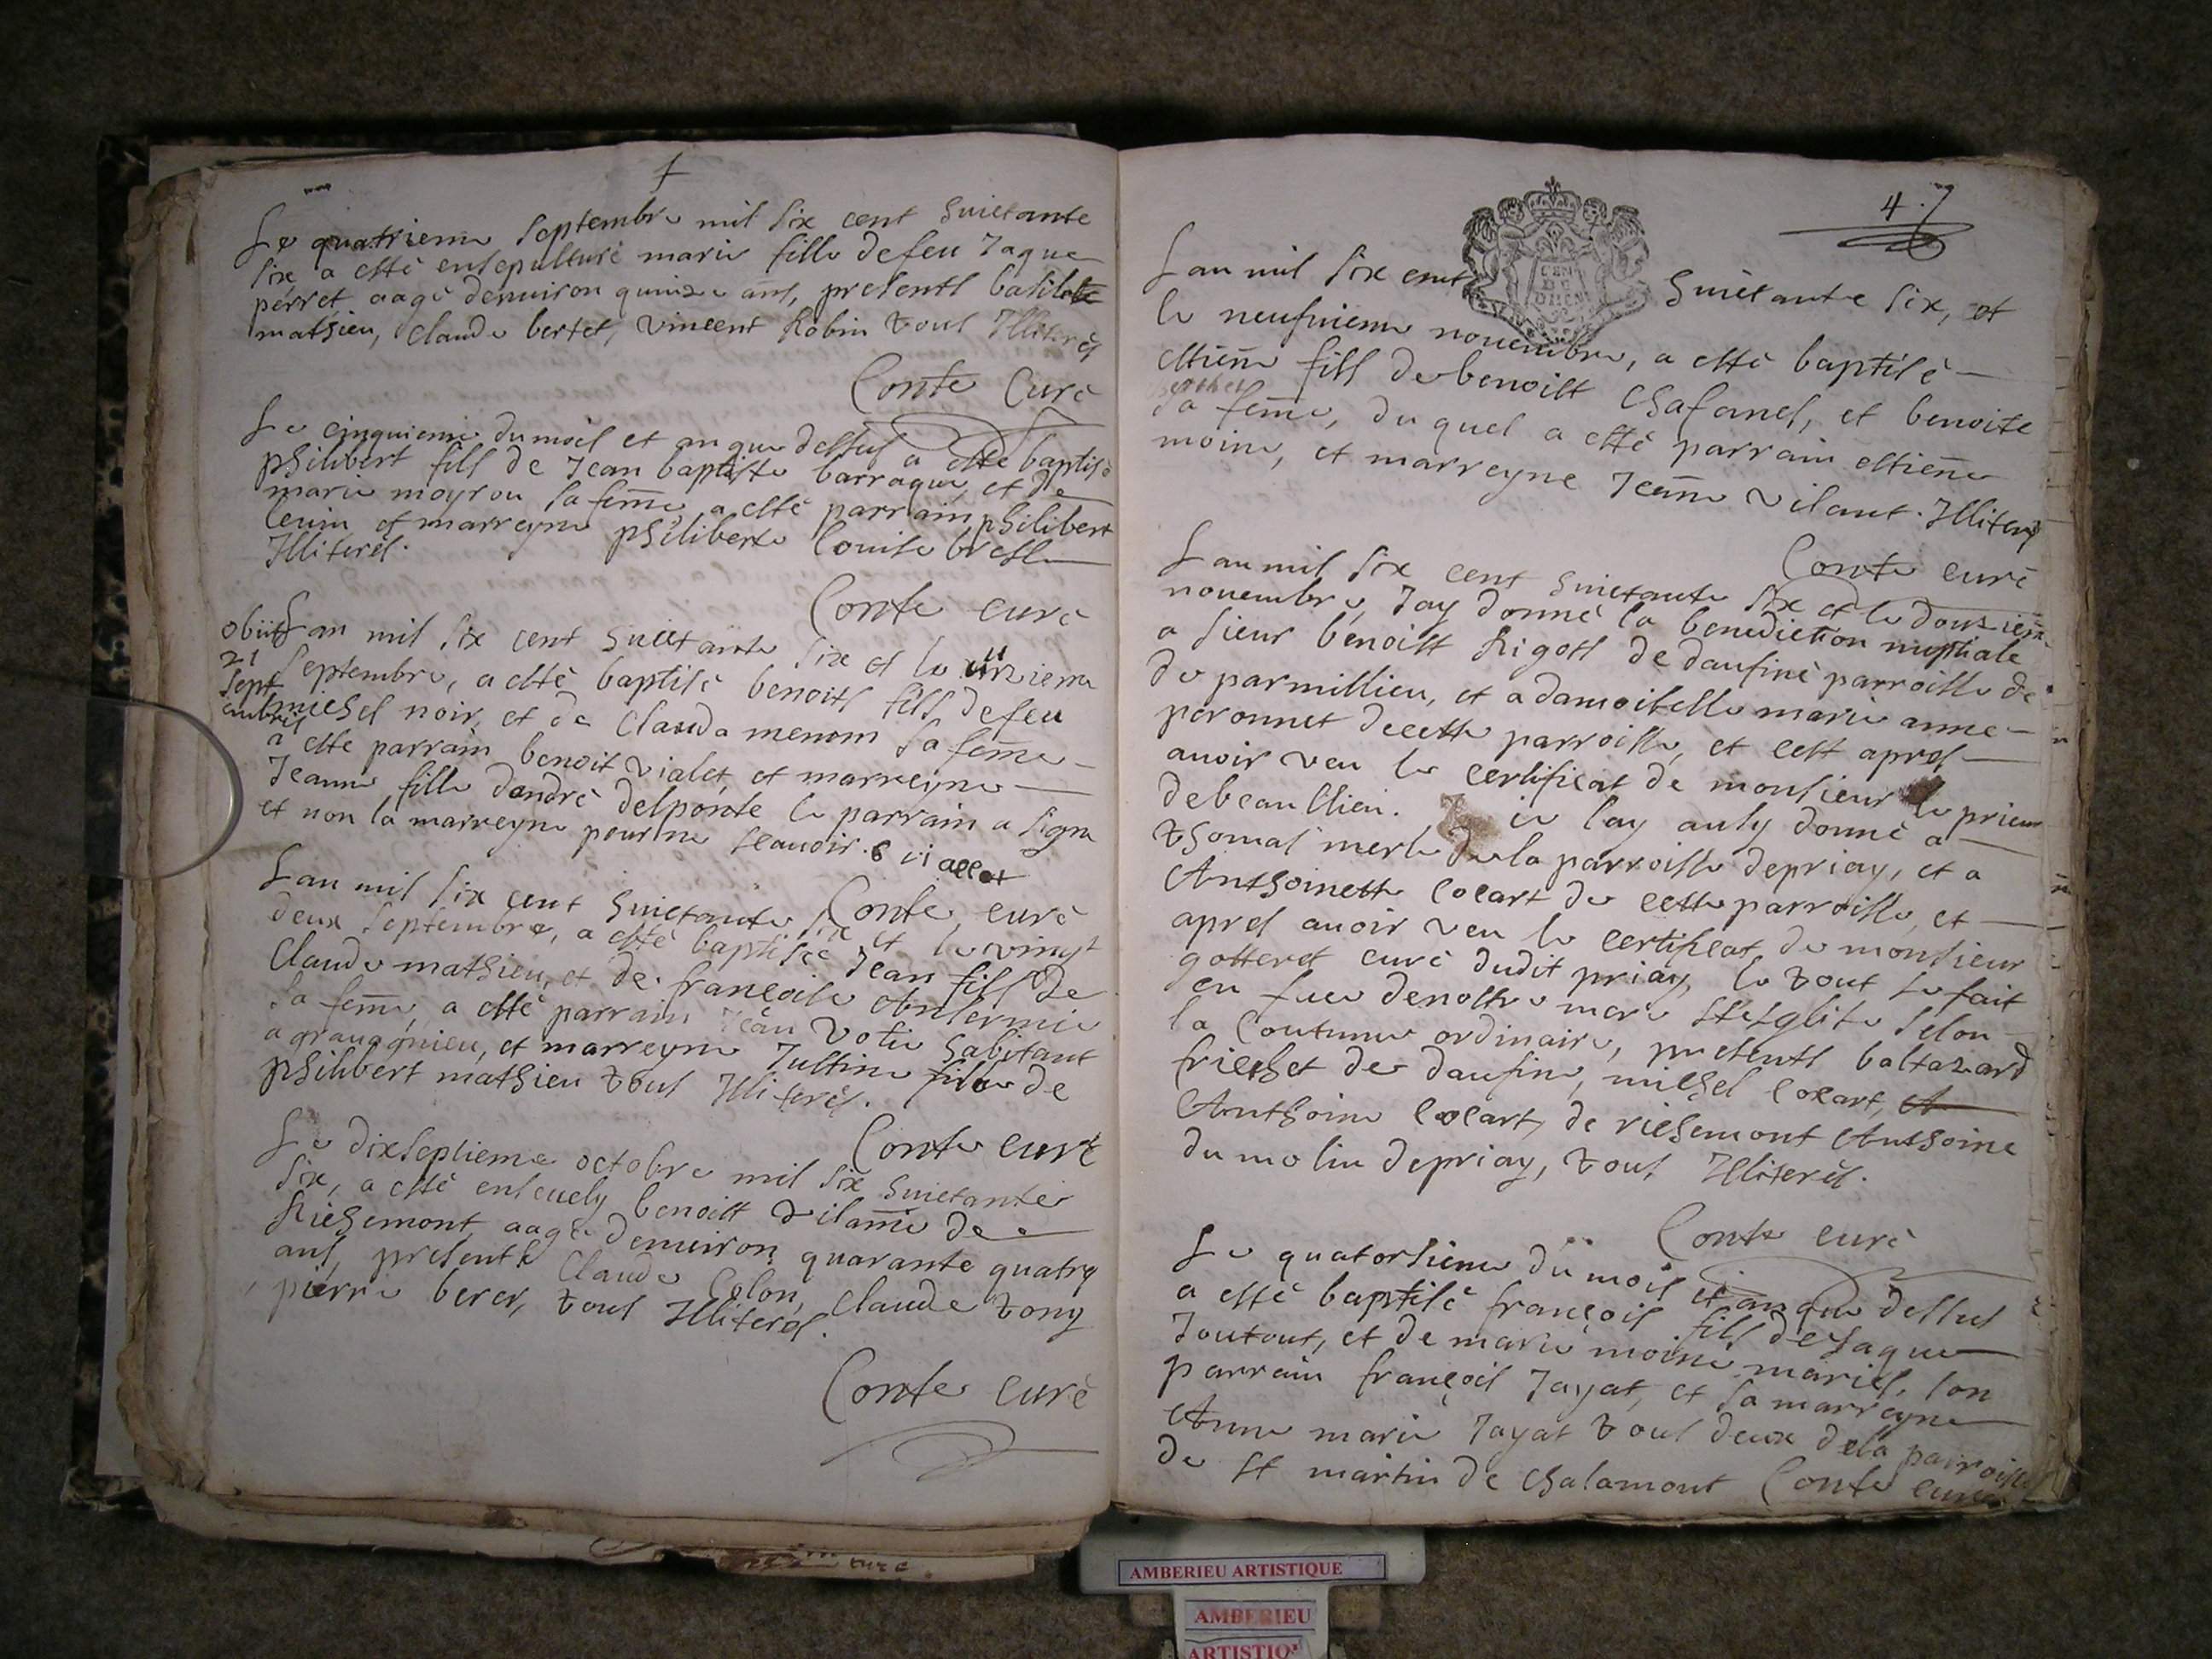 Le quatrieme septembre mil six cent huictante
six a esté ensepulturé marie fille de feu Jaque
perret aagé denuiron quinze ans, presents
mathieu, Claude bertet, vincent Robin tous Illiterés
Conte Curé
Le cinquieme du mois et an que dessus a esté baptisé
philibert fils de Jean baptiste barraque et de
marie moyrou sa feme, a esté parrain philibert
et marreyne philiberte Louise
Illiterés.
Conte curé
obiit Lan mil six cent huictante six et le unzieme
21 septembre, a esté baptisé benoits fils de feu
sept michel noir, et de Clauda menom sa feme
a esté parrain benoit vialet, et marreyne
Jeanne fille dandré delponte le parrain a signé
et non la marreyne pour ne scauoir. B viallet
Conte curé
Lan mil six cent huictante six et le vingt
deux septembre, a esté baptisée Jean fils de
Claude mathieu, et de francoise
sa feme, a esté parrain Jean votie habitant
a grauagnieu, et marreyne Justine fille de
philibert mathieu tous Illiterés.
Conte curé
Le dixseptieme octobre mil six huictante
six, a esté enseuely benoist vilame de
Richemont aagé denuiron quarante quatre
ans, presents Claude Colon, Claude tony
pierre berer, tous Illiterés.
Conte curé
4.7
Lan mil six cent huictante six, et
le neufuieme nouembre, a esté baptisé
estiene fils de benoist Chafanel, et benoite
berthet
sa feme, du quel a esté parrain estiene
moine, et marreyne Jeane vilant. Illiterés
Conte curé
Lan mil six cent huictante six et le douzieme
nouembre, Jay donné la benediction nuptiale
a sieur benoist Rigoll de daufiné parroisse de
de parmillieu, et a damoiselle marie anne
peronnet de cette parroisse, et cest apres
auoir veu le certificat de monsieur le prieur
debeaullieu. ie lay ausy donné a
thomas merle de la parroisse depriay, et a
Anthoinette cocart de cette parroisse, et
apres auoir veu le certificat de monsieur
gotteret curé dudit priay, le tout se fait
en face denostre mere ste Eglise selon
la Coutume ordinaire, presents baltazard
frieshet de daufine, michel cocart, et
Anthoine cocart, de richemont Anthoine
du molin depriay, tous Illiterés.
Conte curé
Le quatorsieme du mois et an que dessus
a esté baptisé françois fils de Jaque
Joutout, et de marie moine mariés, son
parrain françois Jayat, et sa marreyne
Anne marie Jayat tous deux dela parroisse
de st martin de chalamont Conte curé
curé
AMBERIEU ARTISTIQUE
AMBERIEU
ARTISTIQ